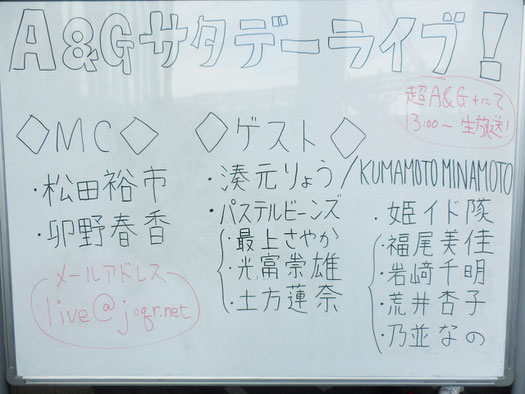 A&Gサタデーライブ!
超A&G+にて
13:00〜生放送!
◇MC◇
・松田裕市
・卯野春香
メールアドレス
live@joqr.net
◇ゲスト◇
・湊元りょう/KUMAMOTO MINAMOTO
・パステルビーンズ
・最上さやか
・光富崇雄
・土方蓮奈
・姫イド隊
・福尾美佳
・岩﨑千明
・荒井杏子
・乃並なの